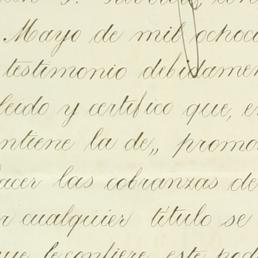 Mayo de mil ochoc
testimonio debidamen
leido y certifico que, en
ntiene la de,, promo
acer las cobranzas de
r cualquier titulo se
que le confiere este pod